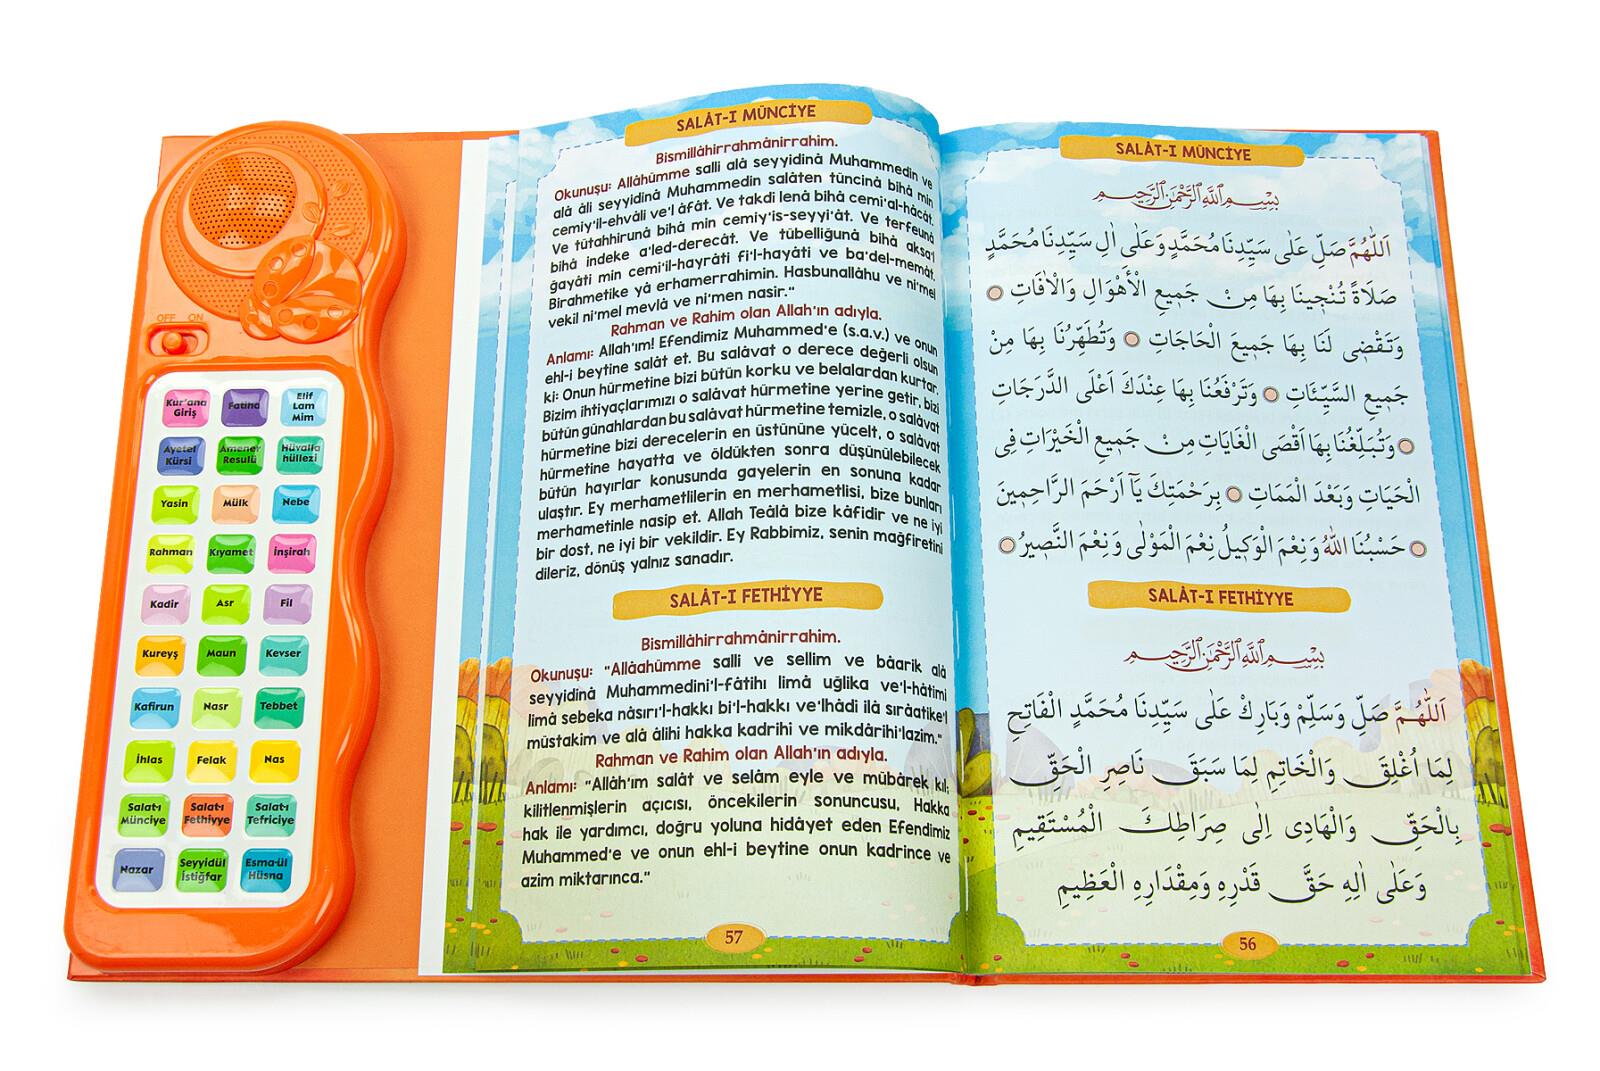 OFF ON
Kur'ana Giriş
Fatiha
Elif Lam Mim
Ayetel Kürsi
Amener Resulü
Hüvalla hüllezi
Yasin
Mülk
Nebe
Rahman
Kıyamet
İnşirah
Kadir
Asr
Fil
Kureyş
Maun
Kevser
Kafirun
Nasr
Tebbet
İhlas
Felak
Nas
Salat-ı Münciye
Salat-ı Fethiyye
Salat-ı Tefriciye
Nazar
Seyyidül İstiğfar
Esma-ül Hüsna
SALÂT-I MÜNCİYE
Bismillâhirrahmânirrahim.
Okunuşu: Allâhümme salli alâ seyyidinâ Muhammedin ve
alâ âli seyyidinâ Muhammedin salâten tüncinâ bihâ min
cemiy'il-ehvâli ve'l âfât. Ve takdi lenâ bihâ cemi'al-hâcât.
Ve tütahhirunâ bihâ min cemiy'is-seyyi'ât. Ve terfeunâ
bihâ indeke a'led-derecât. Ve tübelliğunâ bihâ aksa'l
ğayâti min cemi'il-hayrâti fi'l-hayâti ve ba'del-memât.
Birahmetike yâ erhamerrahimin. Hasbunallâhu ve ni'mel
vekil ni'mel mevlâ ve ni'men nasir."
Rahman ve Rahim olan Allah'ın adıyla.
Anlamı: Allah'ım! Efendimiz Muhammed'e (s.a.v.) ve onun
ehl-i beytine salât et. Bu salâvat o derece değerli olsun
ki: Onun hürmetine bizi bütün korku ve belalardan kurtar.
Bizim ihtiyaçlarımızı o salâvat hürmetine yerine getir, bizi
bütün günahlardan bu salâvat hürmetine temizle, o salâvat
hürmetine bizi derecelerin en üstününe yücelt, o salâvat
hürmetine hayatta ve öldükten sonra düşünülebilecek
bütün hayırlar konusunda gayelerin en sonuna kadar
ulaştır. Ey merhametlilerin en merhametlisi, bize bunları
merhametinle nasip et. Allah Teâlâ bize kâfidir ve ne iyi
bir dost, ne iyi bir vekildir. Ey Rabbimiz, senin mağfiretini
dileriz, dönüş yalnız sanadır.
SALÂT-I FETHİYYE
Bismillâhirrahmânirrahim.
Okunuşu: "Allâahümme salli ve sellim ve bâarik alâ
seyyidinâ Muhammedini'l-fâtihı limâ uğlika ve'l-hâtimi
limâ sebeka nâsırı'l-hakkı bi'l-hakkı ve'lhâdi ilâ sırâatike'l
müstakim ve alâ âlihi hakka kadrihi ve mikdârihi'lazim."
Rahman ve Rahim olan Allah'ın adıyla.
Anlamı: "Allâh'ım salât ve selâm eyle ve mübârek kıl;
kilitlenmişlerin açıcısı, öncekilerin sonuncusu, Hakka
hak ile yardımcı, doğru yoluna hidâyet eden Efendimiz
Muhammed'e ve onun ehl-i beytine onun kadrince ve
azim miktarınca."
57
SALÂT-I MÜNCİYE
بِسْمِ اللهِ الرَّحْمٰنِ الرَّحِيمِ
اَللّٰهُمَّ صَلِّ عَلٰى سَيِّدِنَا مُحَمَّدٍ وَعَلٰى اٰلِ سَيِّدِنَا مُحَمَّدٍ
صَلَاةً تُنْجِينَا بِهَا مِنْ جَمِيعِ الْأَهْوَالِ وَالْاٰفَاتِ
وَتَقْضِى لَنَا بِهَا جَمِيعَ الْحَاجَاتِ وَتُطَهِّرُنَا بِهَا مِنْ
جَمِيعِ السَّيِّئَاتِ وَتَرْفَعُنَا بِهَا عِنْدَكَ اَعْلَى الدَّرَجَاتِ
وَتُبَلِّغُنَا بِهَا اَقْصَى الْغَايَاتِ مِنْ جَمِيعِ الْخَيْرَاتِ فِى
الْحَيَاتِ وَبَعْدَ الْمَمَاتِ بِرَحْمَتِكَ يَآ اَرْحَمَ الرَّاحِمِينَ
حَسْبُنَا اللهُ وَنِعْمَ الْوَكِيلُ نِعْمَ الْمَوْلٰى وَنِعْمَ النَّصِيرُ
SALÂT-I FETHİYYE
بِسْمِ اللهِ الرَّحْمٰنِ الرَّحِيمِ
اَللّٰهُمَّ صَلِّ وَسَلِّمْ وَبَارِكْ عَلٰى سَيِّدِنَا مُحَمَّدٍ الْفَاتِحِ
لِمَا اُغْلِقَ وَالْخَاتِمِ لِمَا سَبَقَ نَاصِرِ الْحَقِّ
بِالْحَقِّ وَالْهَادِى اِلٰى صِرَاطِكَ الْمُسْتَقِيمِ
وَعَلٰى اٰلِهِ حَقَّ قَدْرِهِ وَمِقْدَارِهِ الْعَظِيمِ
56